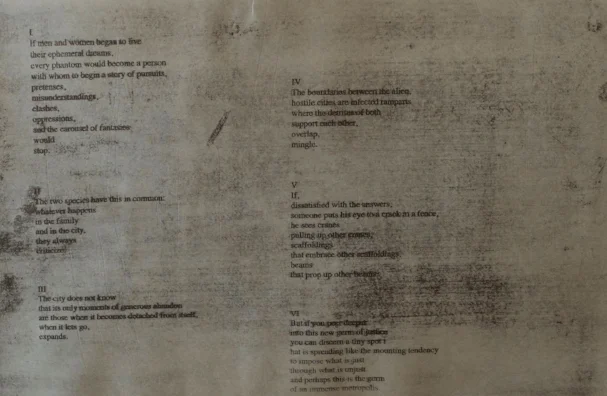 I
If men and women began to live
their ephemeral dreams,
every phantom would become a person
with whom to begin a story of pursuits,
pretenses,
misunderstandings,
clashes,
oppressions,
and the carousel of fantasies
would
stop.
II
The two species have this in common:
whatever happens
in the family
and in the city,
they always
III
The city does not know
that its only moments of generous abandon
are those when it becomes detached from itself,
when it lets go,
expands.
IV
The boundaries between the alien,
hostile cities are infected ramparts
where the detritus of both
support each other,
overlap,
mingle.
V
If,
dissatisfied with the answers,
someone puts his eye to a crack in a fence,
he sees cranes
pulling up other cranes,
scaffoldings
that embrace other scaffoldings
beams
that prop up other beams.
VI
But if you peer deeper
into this new germ of justice
you can discern a tiny spot
that is spreading like the mounting tendency
to impose what is just
through what is unjust
and perhaps this is the germ
of an immense metropolis.